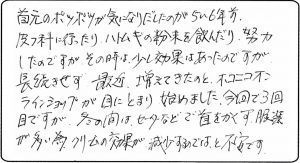 首元のポツポツが気になりだしたのが5、6年前.
皮フ科に行ったり、ハトムギの粉末を飲んだり、努力
したのですが その時は、少し効果はあったのですが
長続きせず 最近、増えてきたのと、ネコニコオン
ラインショップが目にとまり 始めました.今回で3回
目ですが、冬の間は、ヒーターなどで首をかくす服装
が多い為、クリームの効果が減少するのではと、不安です